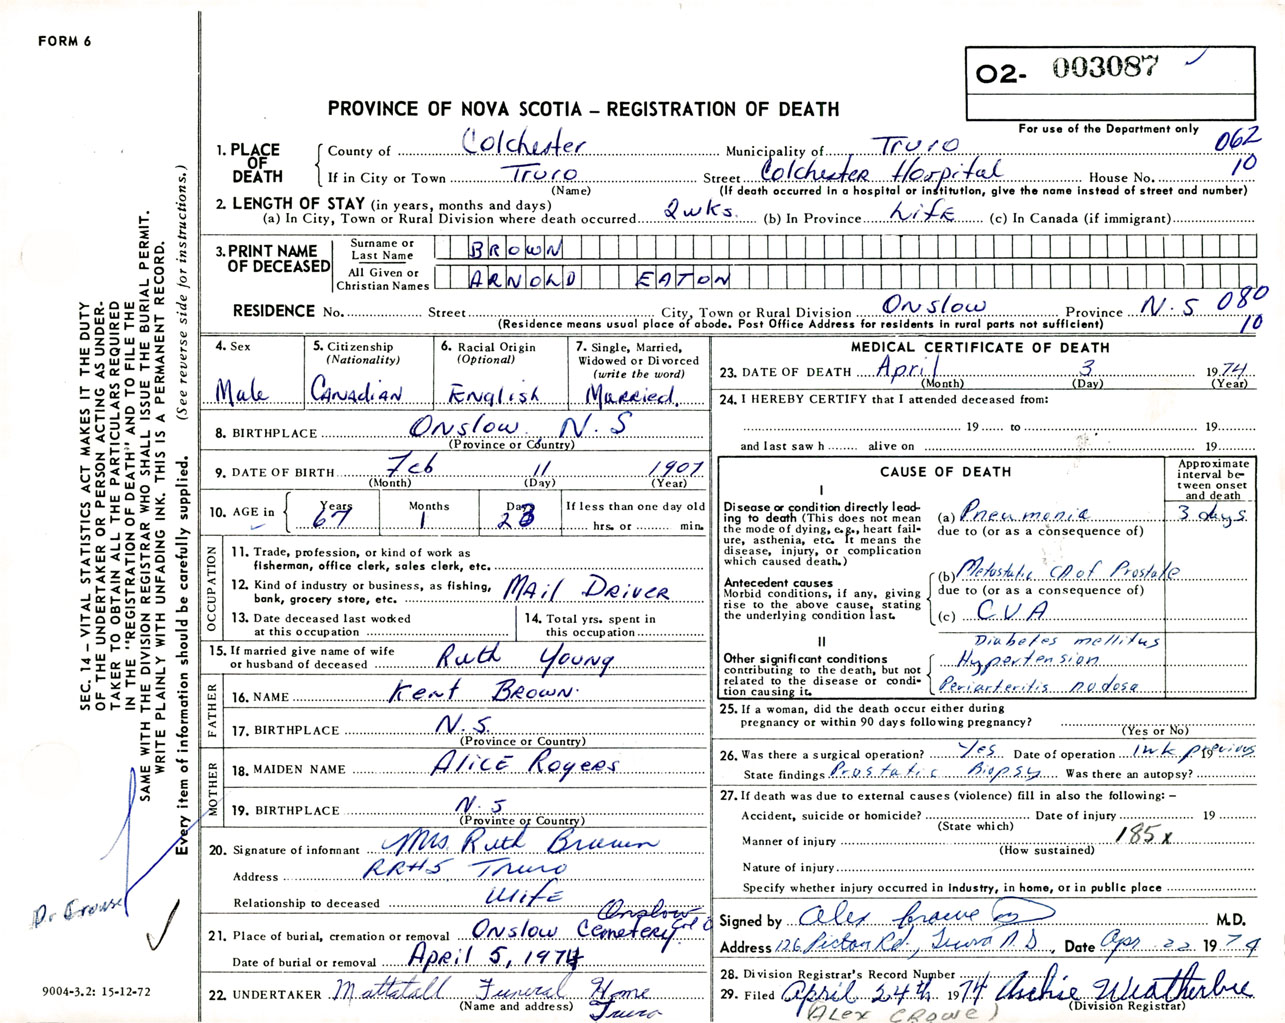 FORM 6
O2- 003087
PROVINCE OF NOVA SCOTIA – REGISTRATION OF DEATH
For use of the Department only
1. PLACE OF DEATH
County of Colchester Municipality of Truro 062
If in City or Town Truro Street Colchester Hospital House No. 10
(Name) (If death occurred in a hospital or institution, give the name instead of street and number)
2. LENGTH OF STAY (in years, months and days)
(a) In City, Town or Rural Division where death occurred 2wks. (b) In Province Life (c) In Canada (if immigrant)
3. PRINT NAME OF DECEASED
Surname or Last Name BROWN
All Given or Christian Names ARNOLD EATON
RESIDENCE No. Street City, Town or Rural Division Onslow Province N.S 080
(Residence means usual place of abode. Post Office Address for residents in rural parts not sufficient) 10
4. Sex Male
5. Citizenship (Nationality) Canadian
6. Racial Origin (Optional) English
7. Single, Married, Widowed or Divorced (write the word) Married.
8. BIRTHPLACE Onslow. N.S
(Province or Country)
9. DATE OF BIRTH Feb 11 1907
(Month) (Day) (Year)
10. AGE in Years 67 Months 1 Days 23 If less than one day old
hrs. or min.
OCCUPATION
11. Trade, profession, or kind of work as
fisherman, office clerk, sales clerk, etc.
12. Kind of industry or business, as fishing,
bank, grocery store, etc. Mail Driver
13. Date deceased last worked
at this occupation
14. Total yrs. spent in
this occupation
15. If married give name of wife
or husband of deceased Ruth Young
FATHER
16. NAME Kent Brown.
17. BIRTHPLACE N.S.
(Province or Country)
MOTHER
18. MAIDEN NAME Alice Rogers
19. BIRTHPLACE N.S
(Province or Country)
20. Signature of informant Mrs. Ruth Brown
Address RR#5 Truro
Relationship to deceased Wife
21. Place of burial, cremation or removal Onslow Cemetery Onslow
Date of burial or removal April 5, 1974
22. UNDERTAKER Mattatall Funeral Home
(Name and address) Truro
MEDICAL CERTIFICATE OF DEATH
23. DATE OF DEATH April 3 1974
(Month) (Day) (Year)
24. I HEREBY CERTIFY that I attended deceased from:
19 to 19
and last saw h alive on 19
CAUSE OF DEATH
Approximate interval between onset and death
I
Disease or condition directly lead-
ing to death (This does not mean
the mode of dying, e.g., heart fail-
ure, asthenia, etc. It means the
disease, injury, or complication
which caused death.)
(a) Pneumonia 3 days
due to (or as a consequence of)
Antecedent causes
Morbid conditions, if any, giving
rise to the above cause, stating
the underlying condition last.
(b) Metastatic CA of Prostate
due to (or as a consequence of)
(c) CVA
II
Other significant conditions
contributing to the death, but not
related to the disease or condi-
tion causing it.
Diabetes mellitus
Hypertension
Periarteritis nodosa
25. If a woman, did the death occur either during
pregnancy or within 90 days following pregnancy?
(Yes or No)
26. Was there a surgical operation? Yes Date of operation 1wk previous 19
State findings Prostatic Biopsy Was there an autopsy?
27. If death was due to external causes (violence) fill in also the following: –
Accident, suicide or homicide? Date of injury 19
(State which)
Manner of injury 185x
(How sustained)
Nature of injury
Specify whether injury occurred in Industry, in home, or in public place
Signed by Alex Crowe MD M.D.
Address 126 Picton Rd., Truro N.S. Date Apr 22 1974
28. Division Registrar's Record Number
29. Filed April 24th 1974 Archie Weatherbie
(Division Registrar)
(ALEX CROWE)
SEC. 14 – VITAL STATISTICS ACT MAKES IT THE DUTY
OF THE UNDERTAKER OR PERSON ACTING AS UNDER-
TAKER TO OBTAIN ALL THE PARTICULARS REQUIRED
IN THE "REGISTRATION OF DEATH" AND TO FILE THE
SAME WITH THE DIVISION REGISTRAR WHO SHALL ISSUE THE BURIAL PERMIT.
WRITE PLAINLY WITH UNFADING INK. THIS IS A PERMANENT RECORD.
Every item of information should be carefully supplied. (See reverse side for instructions.)
Dr Crowse
9004-3.2: 15-12-72